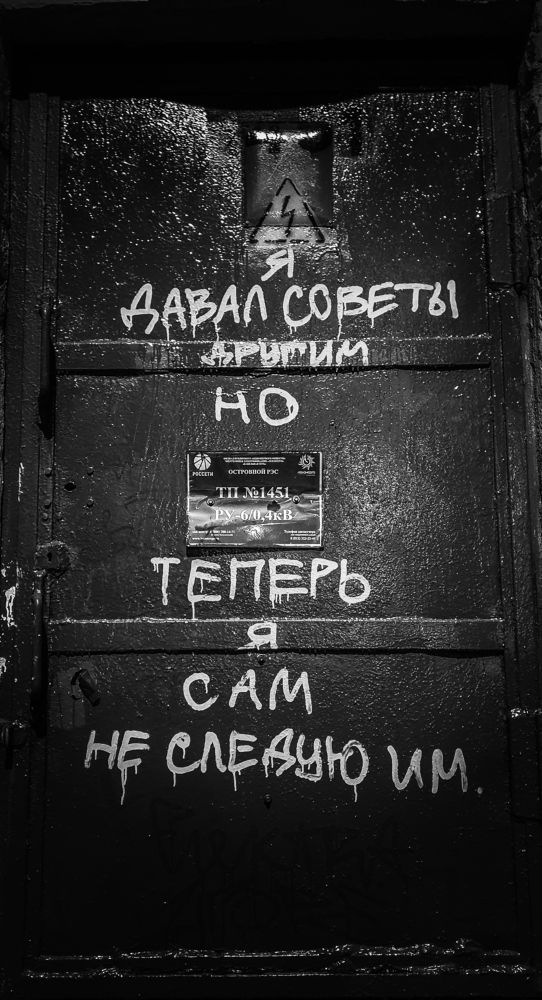 Я
ДАВАЛ СОВЕТЫ
ДРУГИМ
НО
РОССЕТИ
ОСТРОВНОЙ РЭС
ТП №1451
РУ-6/0,4кВ
ТЕПЕРЬ
Я
САМ
НЕ СЛЕДУЮ ИМ.